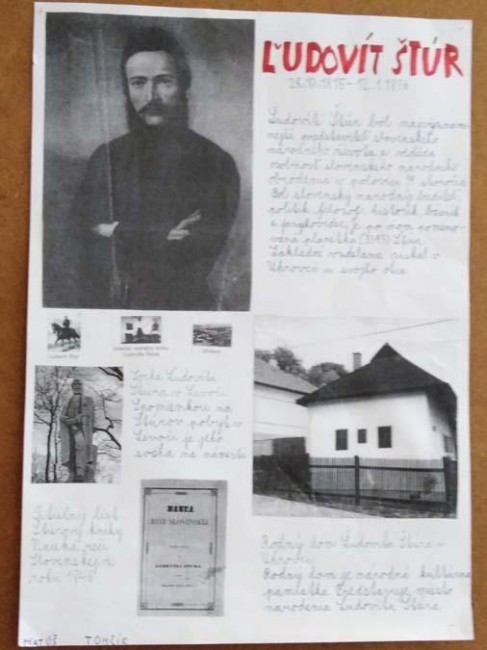 ĽUDOVÍT ŠTÚR
Ľudovít Štúr bol najvýznam-
nejší predstaviteľ slovenského
národného života a vedúca
osobnosť slovenského národného
obrodenia v polovici 19 storočia
Bol slovenský národný buditeľ
politik filozof, historik
a jazykovedec, je po ňom pomeno-
vaná planétka (3393) Štúr,
Základné vzdelanie získal v
Uhrovci u svojho otca
Socha Ľudovíta
Štúra v Levoči
Spomienkou na
Štúrov pobyt v
Levoči je jeho
socha na námestí
Titulný list
Štúrovej knihy
Nauka reči
Slovenskej
roku 1846
NAUKA
REČI SLOVENSKEJ
Rodný dom Ľudovíta Štúra -
Uhrovec
Rodný dom je národná kultúrna
pamiatka Predstavuje miesto
narodenia Ľudovíta Štúra
MATÚŠ TOMČÍK